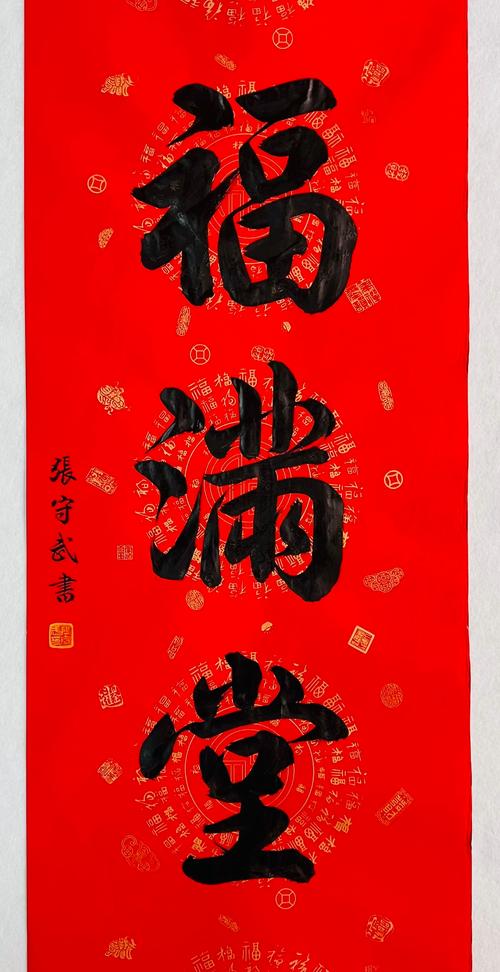 福滿堂
張守武書